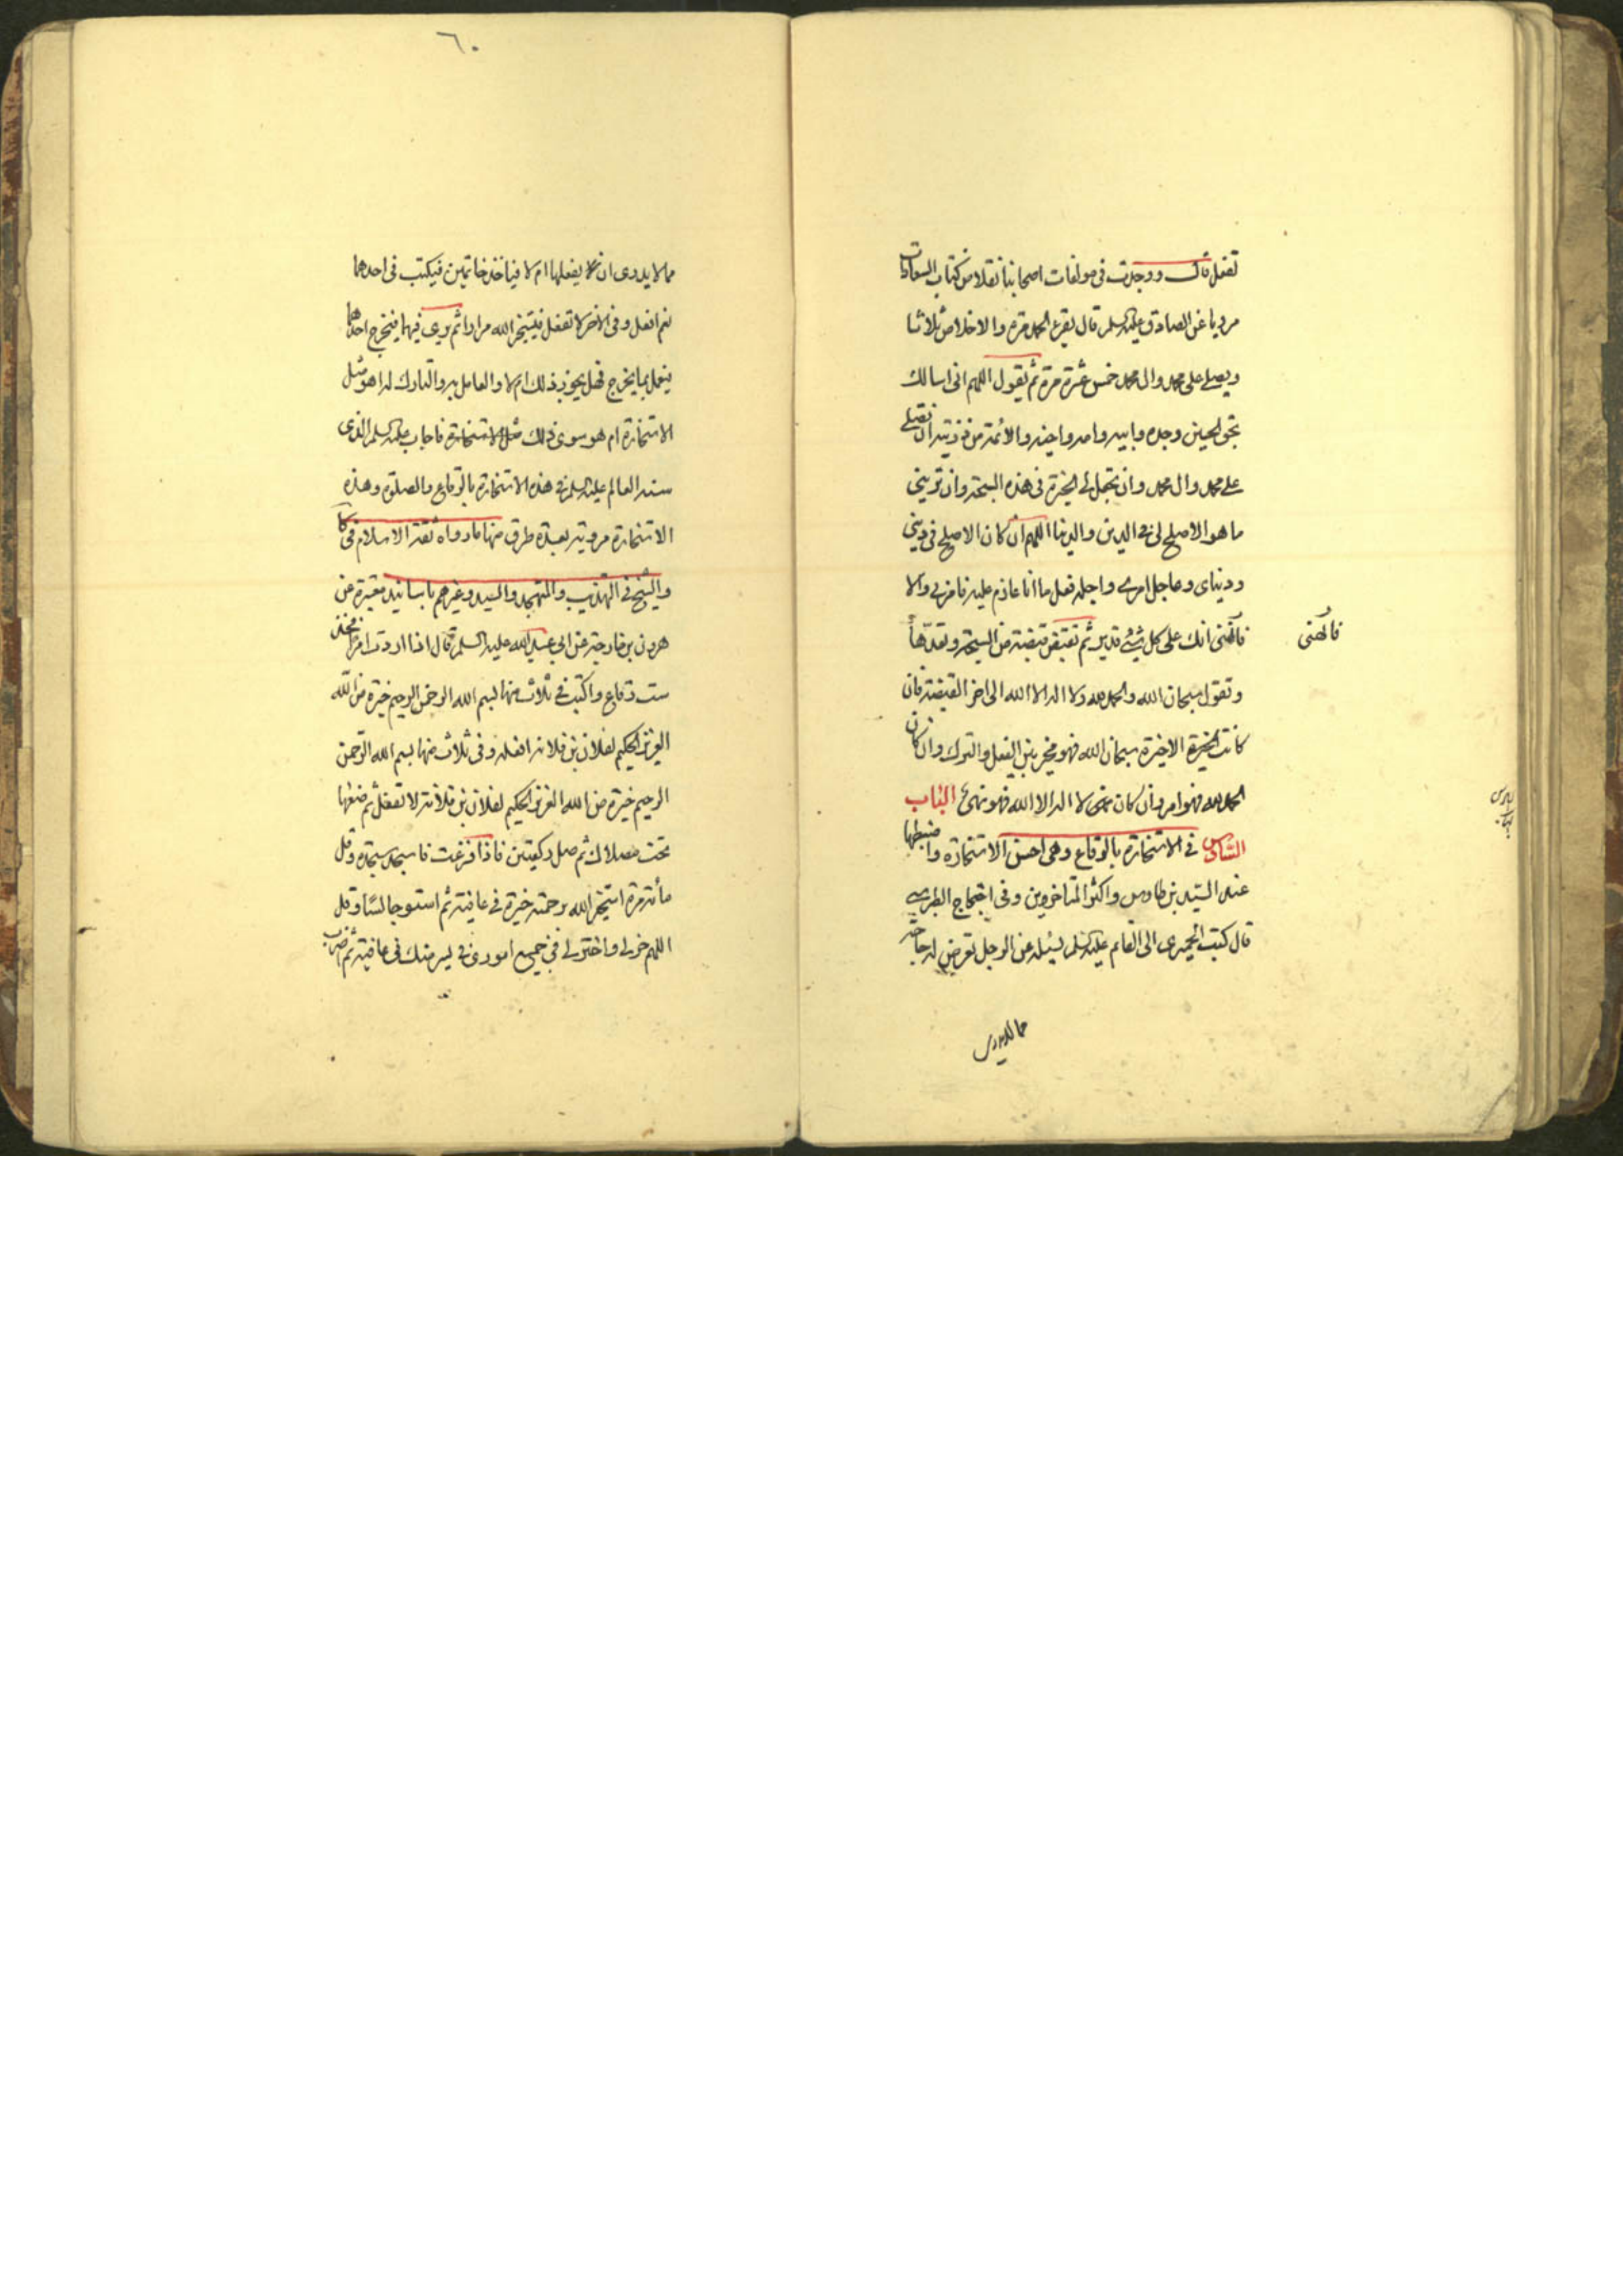 تفعل ثالث ووجدت فى مولفات اصحابنا نقلا من كتاب السعادات
مرويا عن الصادق عليه السلم قال يقرء الحمد مرة والاخلاص ثلاثا
ويصلى على محمد وال محمد خمس عشرة مرة ثم يقول اللهم انى اسالك
بحق الحسين وجده وابيه وامه واخيه والائمة من ذريته ان تصلى
على محمد وال محمد وان تجعل لى الخيرة فى هذه السبحة وان ترينى
ما هو الاصلح لى فى الدين والدنيا اللهم ان كان الاصلح فى دينى
ودنياى وعاجل امرى واجله فعل ما انا عازم عليه فامرنى والا
فانهنى انك على كل شئ قدير ثم تقبض قبضة من السبحة وتعدها
فانهنى
وتقول سبحان الله والحمد لله ولا اله الا الله الى اخر القبضة فان
كانت الخيرة الاخيرة سبحان الله فهو مخير بين الفعل والترك وان كان
الحمد لله فهو امر وان كان لا اله الا الله فهو نهى الباب
السادس فى الاستخارة بالرقاع وهى احسن الاستخارة واضبطها
عند السيد بن طاوس واكثر المتاخرين وفى احتجاج الطبرسى
قال كتب الحميرى الى القايم عليه السلم يسئله عن الرجل تعرض له حاجة
مما لا يدرى
٦٠
مما لا يدرى ان يفعلها ام لا فياخذ خاتمين فيكتب فى احدهما
نعم افعل وفى الاخر لا تفعل فيستخير الله مرارا ثم يرى فيهما فيخرج احدهما
فيعمل بما يخرج فهل يجوز ذلك ام لا والعامل به والتارك له اهو مثل
الاستخارة ام هو سوى ذلك مثل الاستخارة فاجاب عليه السلم الذى
سنه العالم عليه السلم فى هذه الاستخارة بالرقاع والصلوة وهذه
الاستخارة مروية بعدة طرق منها ما رواه ثقة الاسلام فى كا
والشيخ فى التهذيب والمتهجد والسيد وغيرهم باسانيد معتبرة عن
هرون بن خارجة عن ابى عبد الله عليه السلم قال اذا اردت امرا فخذ
ست رقاع واكتب فى ثلاث منها بسم الله الرحمن الرحيم خيرة من الله
العزيز الحكيم لفلان بن فلانة افعله وفى ثلاث منها بسم الله الرحمن
الرحيم خيرة من الله العزيز الحكيم لفلان بن فلانة لا تفعل ثم ضعها
تحت مصلاك ثم صل ركعتين فاذا فرغت فاسجد سجدة وقل
مأئة مرة استخير الله برحمته خيرة فى عافية ثم استو جالسا وقل
اللهم خر لى واختر لى فى جميع امورى فى يسر منك فى عافية ثم اضرب